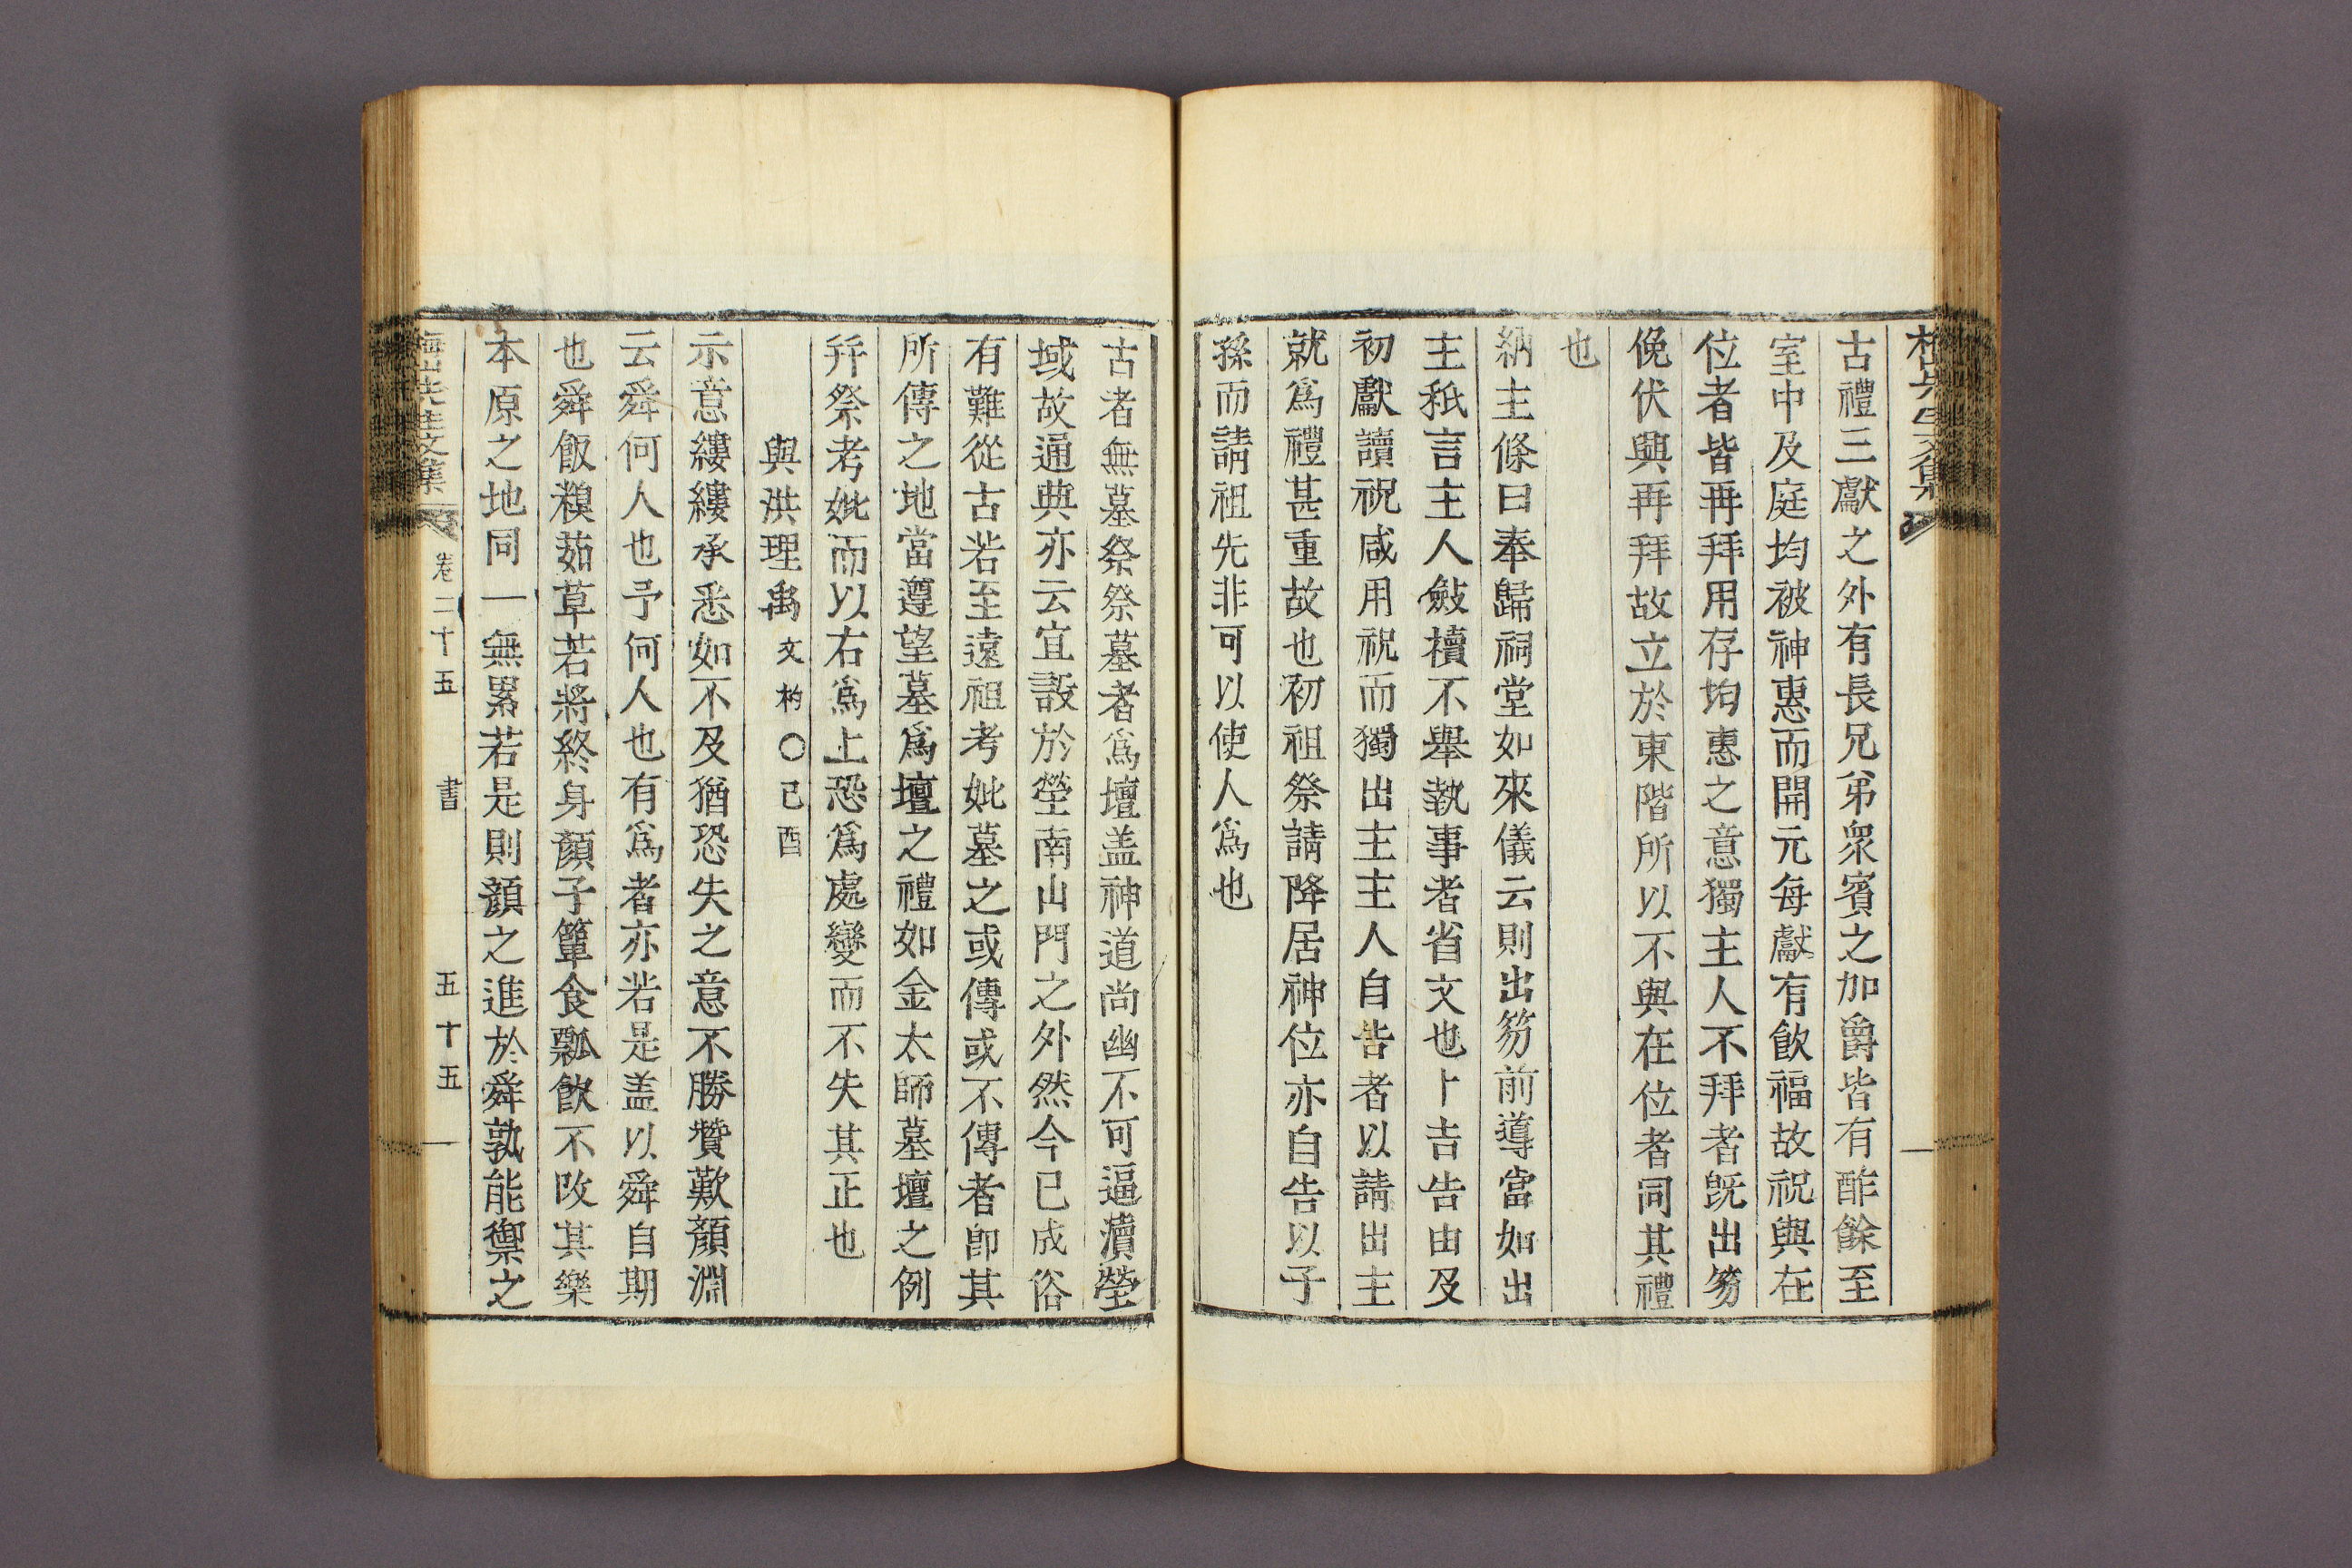 古禮三獻之外有長兄弟衆賓之加爵皆有酢餘至
室中及庭均被神惠而開元每獻有飮福故祝與在
位者皆再拜用存均惠之意獨主人不拜者旣出笏
俛伏興再拜故立於東階所以不與在位者同其禮
也
納主條曰奉歸祠堂如來儀云則出笏前導當如出
主秖言主人斂櫝不舉執事者省文也卜吉告由及
初獻讀祝咸用祝而獨出主主人自告者以請出主
就爲禮甚重故也初祖祭請降居神位亦自告以子
孫而請祖先非可以使人爲也
古者無墓祭祭墓者爲壇盖神道尚幽不可逼瀆塋
域故通典亦云宜設於塋南山門之外然今已成俗
有難從古若至遠祖考妣墓之或傳或不傳者卽其
所傳之地當遵望墓爲壇之禮如金太師墓壇之例
幷祭考妣而以右爲上恐爲處變而不失其正也
與洪理禹 文杓○己酉
示意縷縷承悉如不及猶恐失之意不勝贊歎顏淵
云舜何人也予何人也有爲者亦若是盖以舜自期
也舜飯糗茹草若將終身顏子簞食瓢飮不改其樂
本原之地同一無累若是則顏之進於舜孰能禦之
梅山先生文集 卷二十五 書 五十五